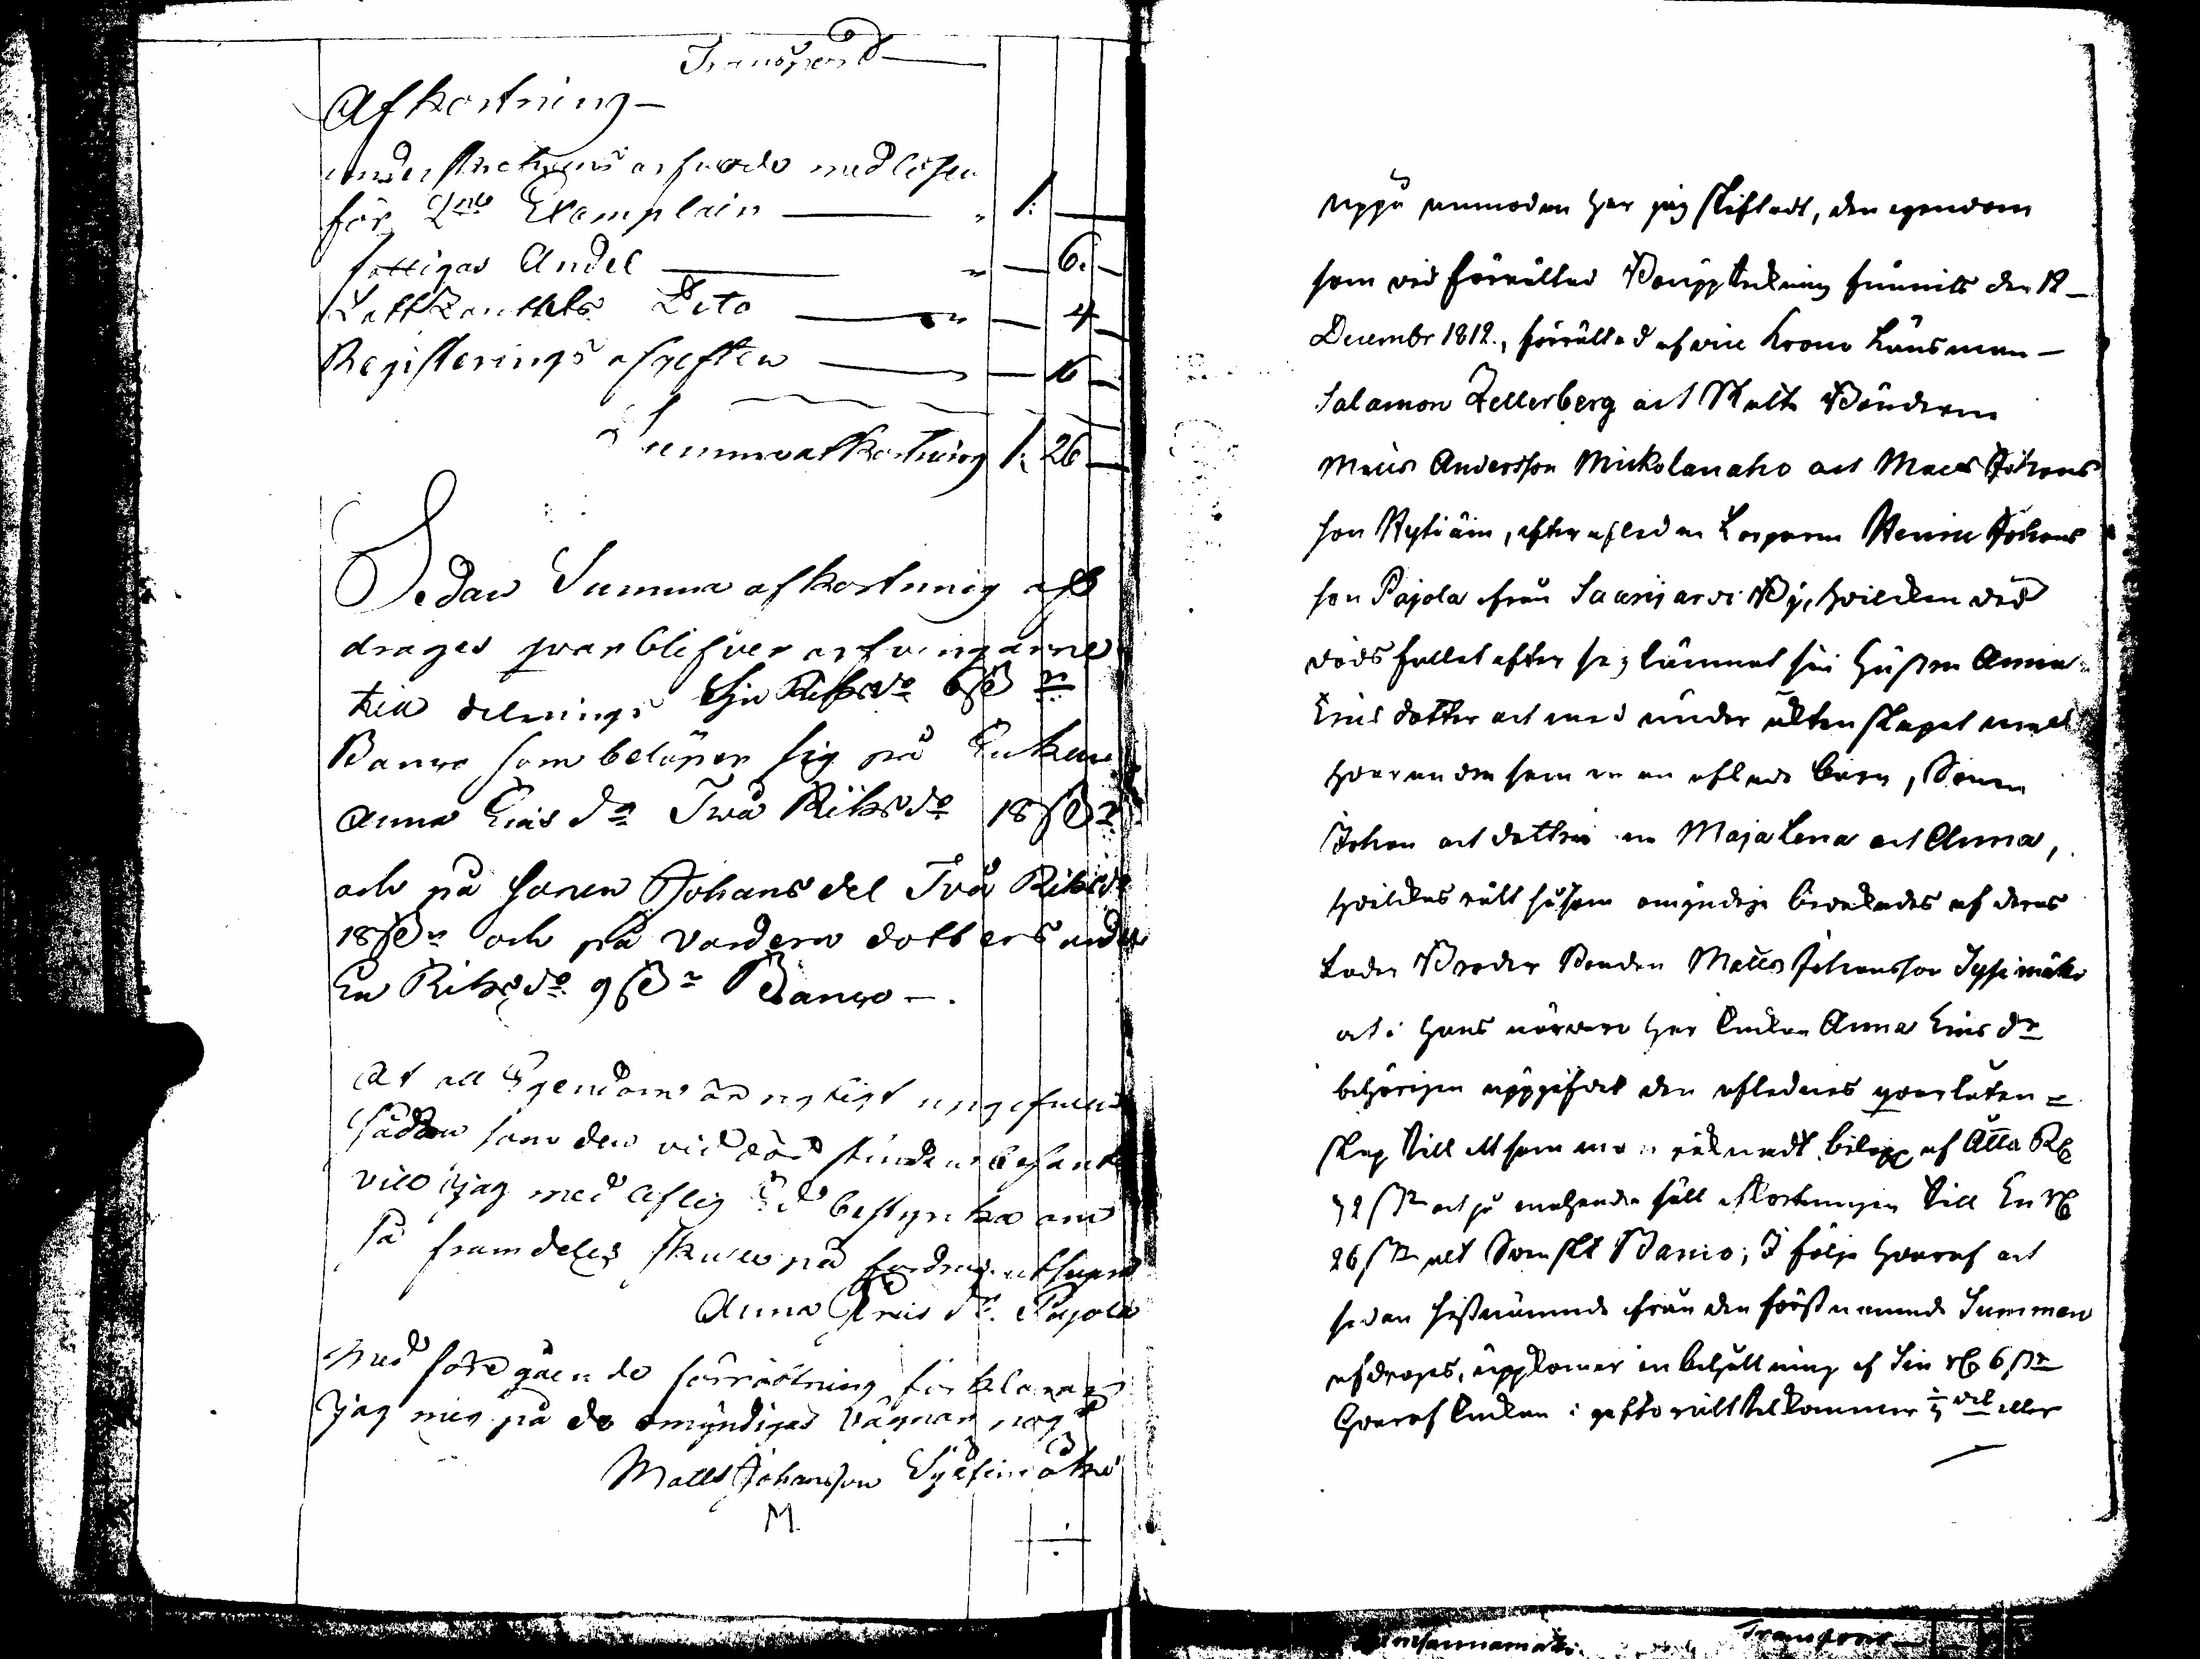 Transport
Afkortning
underskrefvens arfwode med lösen
för 2ne Exemplair " 1: —
fattigas Andel " — 6. —
Dito " — 4 —
Registerings afgeften — 16 —
Summa afkortning 1: 26 —
Sedan Summa afkortning af
drages qvarblifver arfvingarne
till delnings Sju Riksdr 6 s
Banco som belöper sig på Enkan
Anna Ericsdr Två Riksdr 18 s
och på sonen Johans del Två Riksdr
18 s och på vardera dotters andel
En Riksdr 9 s Banco —.
At all Egendom är rigtigt uppgifven
sådan som den vid döds stunden befants
vill jag med liflig Ed bestyrka om
så framdeles skulle på fordras
Anna Erics dr. Pajola
Med föregående förrättning förklarar
jag mig på de omyndigas vägnar nögd
Matts Johansson Syssimäki
M
Uppå anmodan har jag skiftadt, den egendom
som vid förrättad Bouppteckning funnits den 12
December 1812., förrättad af vice Krono Länsman
Salamon Zellerberg och Bönderne
Matts Andersson Mickolanaho och Matts Johans
son Kytiäin, efter afledne Henric Johans
son Pajola ifrån Saarijarvi By, hvilken vid
döds fallet efter sig lämnat sin Hustru Anna
Erics dotter och med under äktenskapet med
hvarandra sammanaflade barn, Sonen
Johan och döttrarne Maja Lena och Anna,
hvilkas rätt såsom omyndige bevakades af deras
Fader Broder Bonden Matts Johansson Syssimäki
och i hans närvaro har Enkan Anna Erics dr
behörigen uppgifvit den aflednes qvarlåten=
skap till ett sammanräknadt belopp af Åtta R
32 s och på enahanda sätt afkortningen till En R
26 s alt Svenskt Banco; I följe hvaraf och
sedan sistnämnde ifrån den förstnämnde Summan
afdrages, uppkommer en behållning af Sju R 6 s
hvaraf Enkan i giftorätt tillkommer ⅓ del eller
Transport